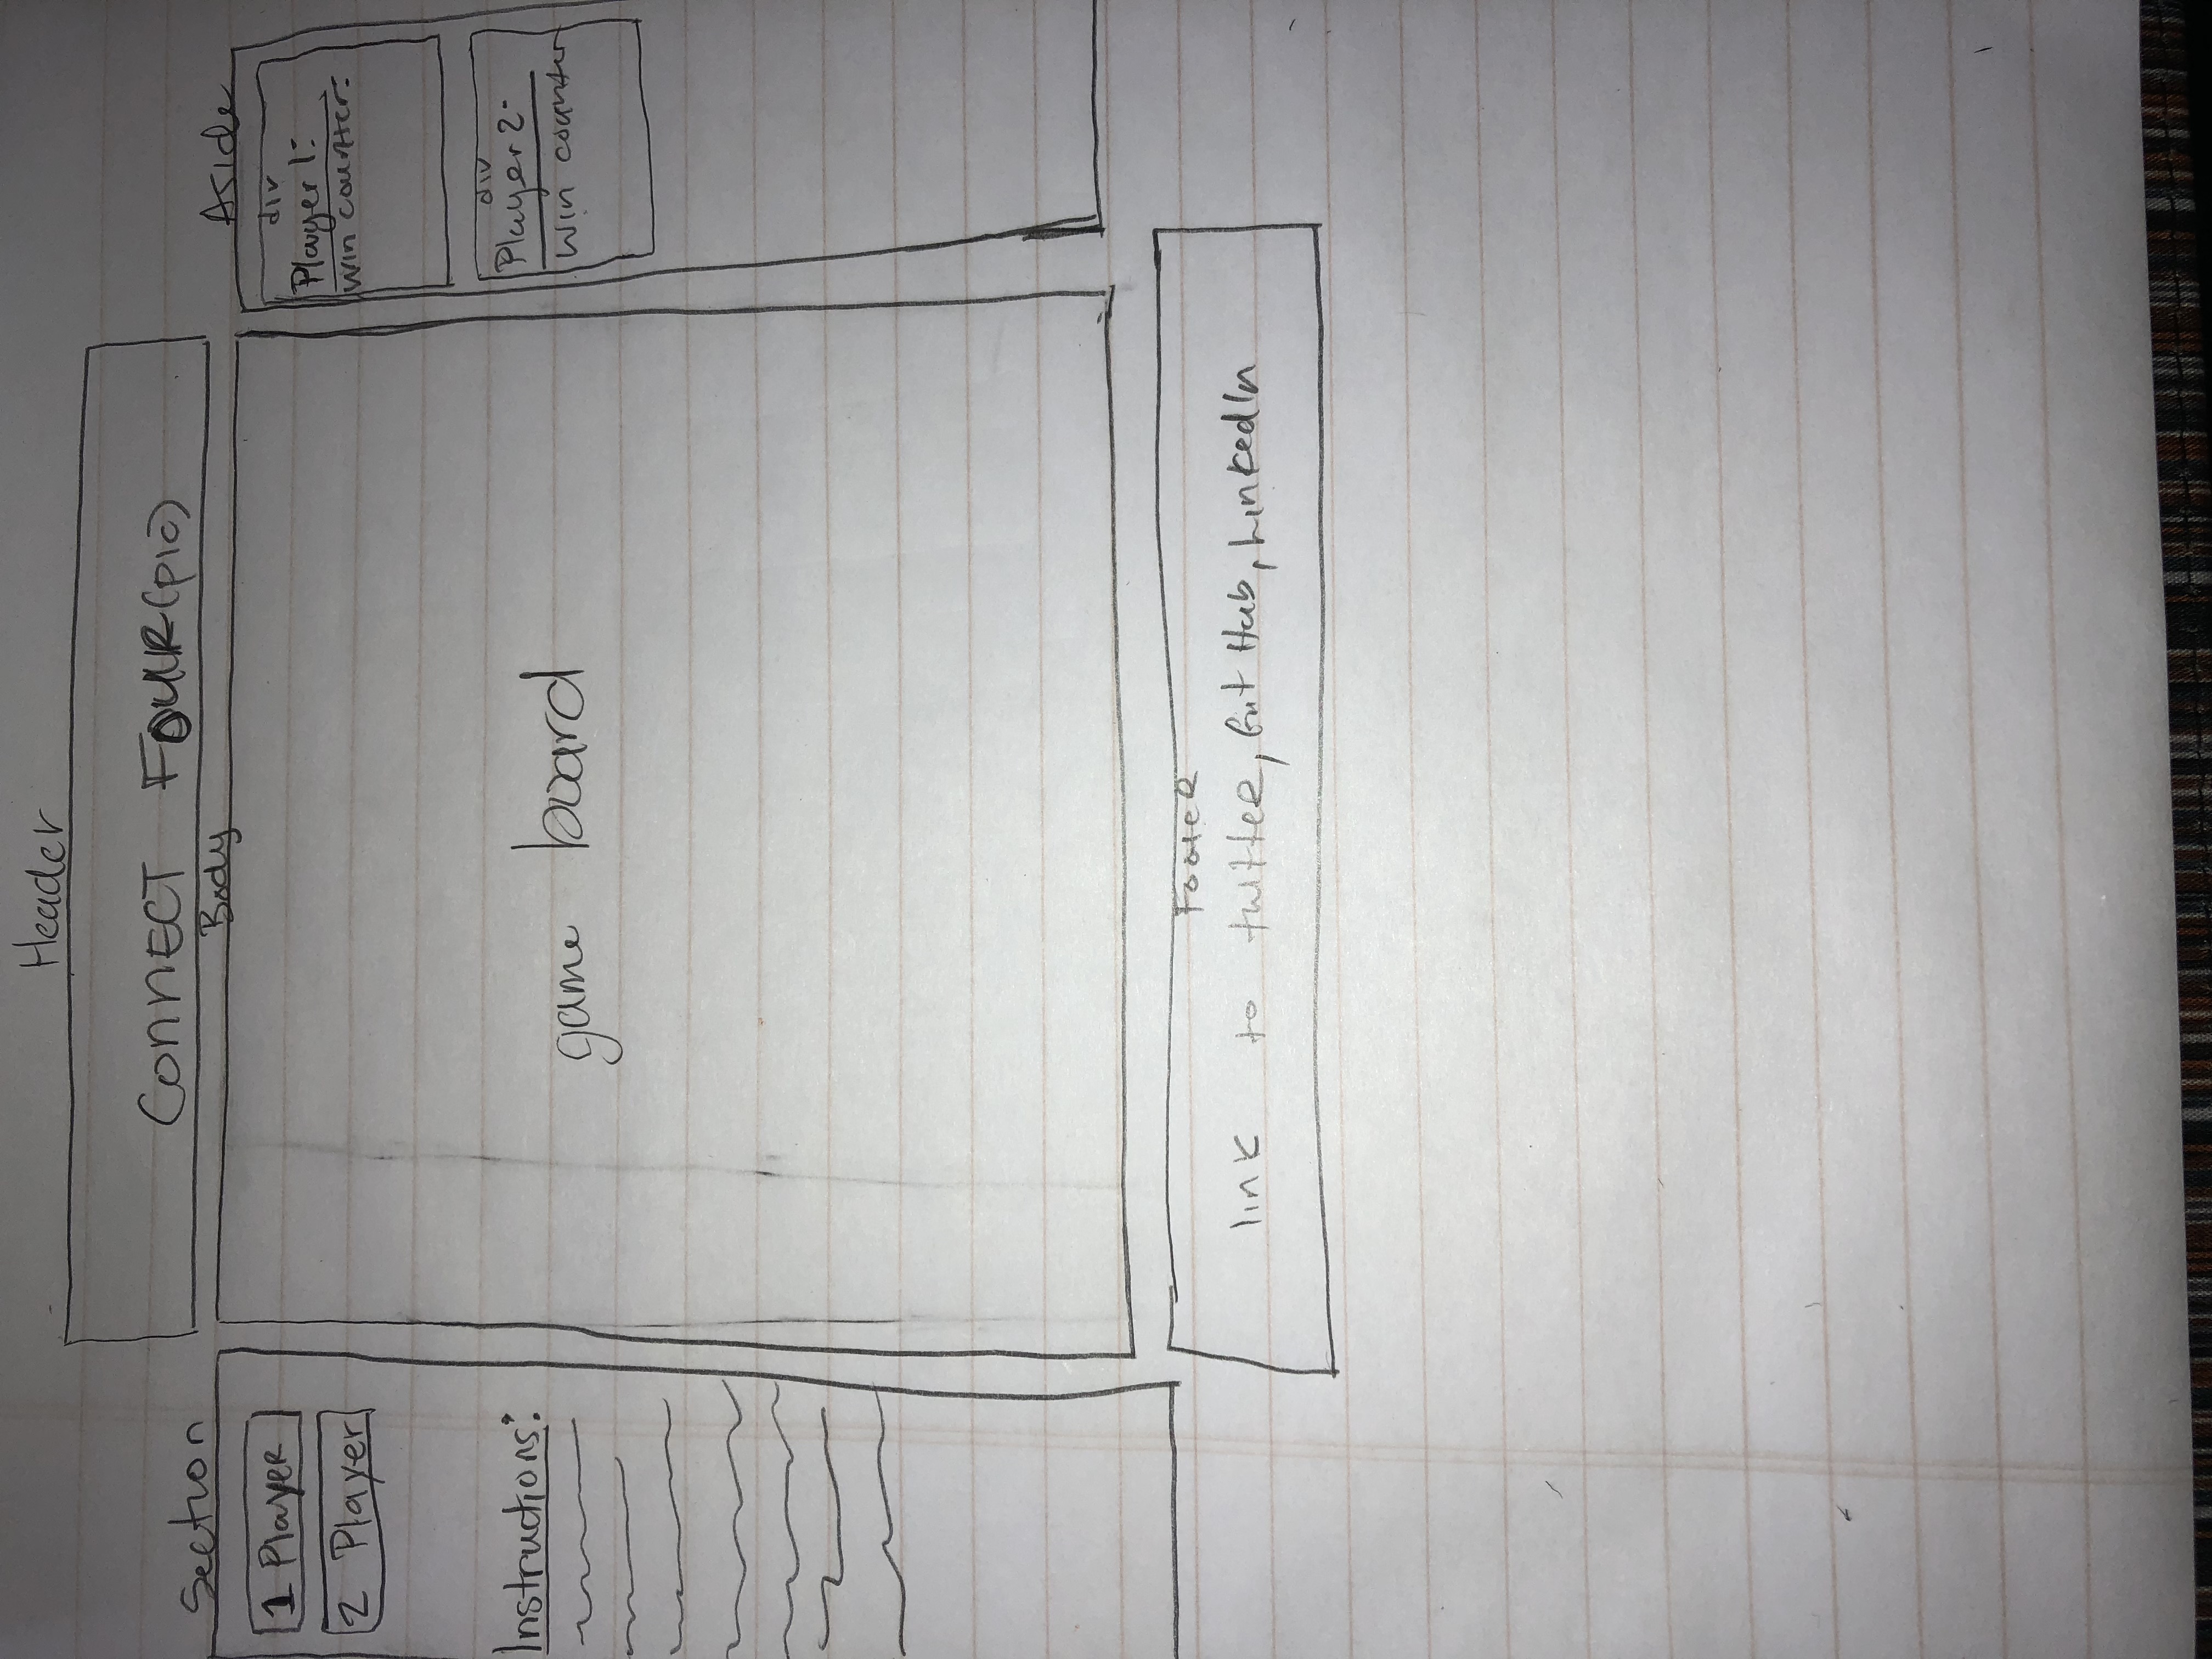 Header
CONNECT FOUR (pic)
Section
1 Player
2 Player
Instructions:
Body
game board
Aside
div
Player 1:
win counter:
div
Player 2:
Win counter
Footer
link to twitter, Git Hub, LinkedIn